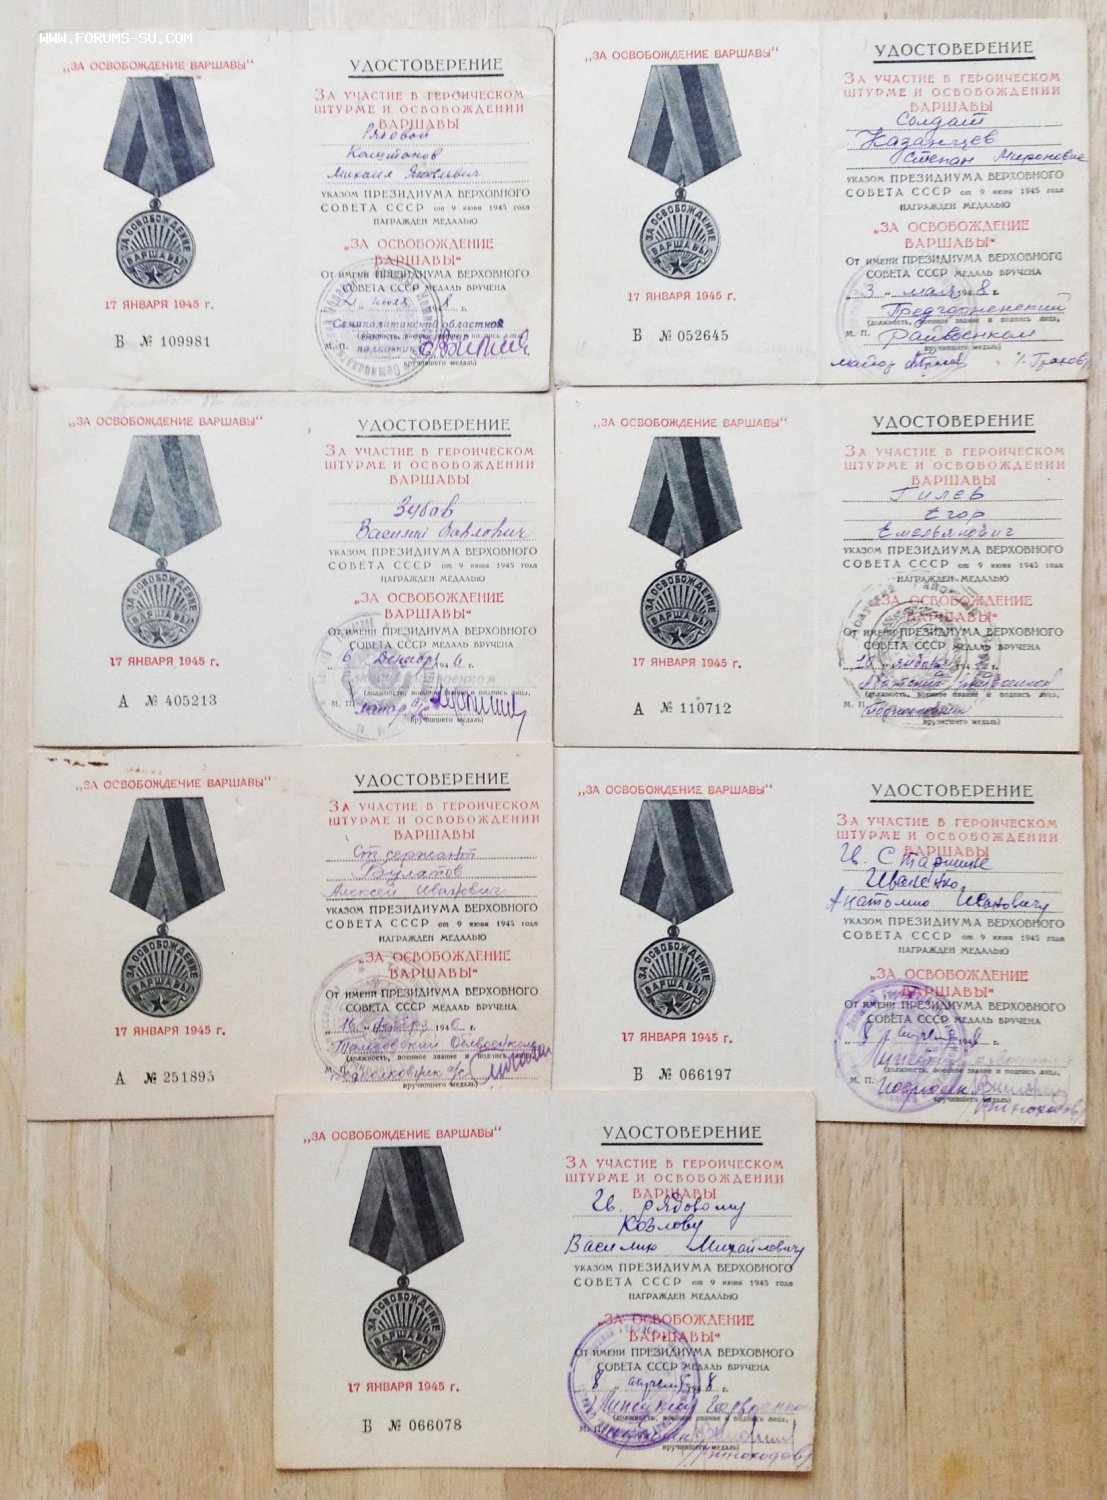 WWW.FORUMS-SU.COM
„ЗА ОСВОБОЖДЕНИЕ ВАРШАВЫ“
ЗА ОСВОБОЖДЕНИЕ
ВАРШАВЫ
17 ЯНВАРЯ 1945 г.
Б № 109981
УДОСТОВЕРЕНИЕ
ЗА УЧАСТИЕ В ГЕРОИЧЕСКОМ
ШТУРМЕ И ОСВОБОЖДЕНИИ
ВАРШАВЫ
Рядовой
Каштанов
Михаил Яковлевич
УКАЗОМ ПРЕЗИДИУМА ВЕРХОВНОГО
СОВЕТА СССР от 9 июня 1945 года
НАГРАЖДЕН МЕДАЛЬЮ
„ЗА ОСВОБОЖДЕНИЕ
ВАРШАВЫ“
ОТ ИМЕНИ ПРЕЗИДИУМА ВЕРХОВНОГО
СОВЕТА СССР МЕДАЛЬ ВРУЧЕНА
2 июля 8 г.
Семипалатинский областной
М. П. полковник
вручившего медаль)
„ЗА ОСВОБОЖДЕНИЕ ВАРШАВЫ“
ЗА ОСВОБОЖДЕНИЕ
ВАРШАВЫ
17 ЯНВАРЯ 1945 г.
Б № 052645
УДОСТОВЕРЕНИЕ
ЗА УЧАСТИЕ В ГЕРОИЧЕСКОМ
ШТУРМЕ И ОСВОБОЖДЕНИИ
ВАРШАВЫ
Солдат
Казанцев
Степан Миронович
УКАЗОМ ПРЕЗИДИУМА ВЕРХОВНОГО
СОВЕТА СССР от 9 июня 1945 года
НАГРАЖДЕН МЕДАЛЬЮ
„ЗА ОСВОБОЖДЕНИЕ
ВАРШАВЫ“
ОТ ИМЕНИ ПРЕЗИДИУМА ВЕРХОВНОГО
СОВЕТА СССР МЕДАЛЬ ВРУЧЕНА
„3“ мая 1948 г.
Предгорненский
(должность, военное звание и подпись лица,
М. П. Райвоенком
вручившего медаль)
майор
„ЗА ОСВОБОЖДЕНИЕ ВАРШАВЫ“
ЗА ОСВОБОЖДЕНИЕ
ВАРШАВЫ
17 ЯНВАРЯ 1945 г.
А № 405213
УДОСТОВЕРЕНИЕ
ЗА УЧАСТИЕ В ГЕРОИЧЕСКОМ
ШТУРМЕ И ОСВОБОЖДЕНИИ
ВАРШАВЫ
Зубов
Василий Павлович
УКАЗОМ ПРЕЗИДИУМА ВЕРХОВНОГО
СОВЕТА СССР от 9 июня 1945 года
НАГРАЖДЕН МЕДАЛЬЮ
„ЗА ОСВОБОЖДЕНИЕ
ВАРШАВЫ“
ОТ ИМЕНИ ПРЕЗИДИУМА ВЕРХОВНОГО
СОВЕТА СССР МЕДАЛЬ ВРУЧЕНА
6 Декабря 194 г.
(должность, военное звание и подпись лица,
М. П. майор
вручившего медаль)
„ЗА ОСВОБОЖДЕНИЕ ВАРШАВЫ“
ЗА ОСВОБОЖДЕНИЕ
ВАРШАВЫ
17 ЯНВАРЯ 1945 г.
А № 110712
УДОСТОВЕРЕНИЕ
ЗА УЧАСТИЕ В ГЕРОИЧЕСКОМ
ШТУРМЕ И ОСВОБОЖДЕНИИ
ВАРШАВЫ
Гилев
Егор
Емельянович
УКАЗОМ ПРЕЗИДИУМА ВЕРХОВНОГО
СОВЕТА СССР от 9 июня 1945 года
НАГРАЖДЕН МЕДАЛЬЮ
„ЗА ОСВОБОЖДЕНИЕ
ВАРШАВЫ“
ОТ ИМЕНИ ПРЕЗИДИУМА ВЕРХОВНОГО
СОВЕТА СССР МЕДАЛЬ ВРУЧЕНА
января 194 г.
Абатский райвоенком
(должность, военное звание и подпись лица,
М. П.
вручившего медаль)
„ЗА ОСВОБОЖДЕНИЕ ВАРШАВЫ“
ЗА ОСВОБОЖДЕНИЕ
ВАРШАВЫ
17 ЯНВАРЯ 1945 г.
А № 251895
УДОСТОВЕРЕНИЕ
ЗА УЧАСТИЕ В ГЕРОИЧЕСКОМ
ШТУРМЕ И ОСВОБОЖДЕНИИ
ВАРШАВЫ
Ст. сержант
Булатов
Алексей Иванович
УКАЗОМ ПРЕЗИДИУМА ВЕРХОВНОГО
СОВЕТА СССР от 9 июня 1945 года
НАГРАЖДЕН МЕДАЛЬЮ
„ЗА ОСВОБОЖДЕНИЕ
ВАРШАВЫ“
ОТ ИМЕНИ ПРЕЗИДИУМА ВЕРХОВНОГО
СОВЕТА СССР МЕДАЛЬ ВРУЧЕНА
„16“ 194 г.
Тамбовский Облвоенком
(должность, военное звание и подпись лица,
М. П. подполковник
вручившего медаль)
„ЗА ОСВОБОЖДЕНИЕ ВАРШАВЫ“
ЗА ОСВОБОЖДЕНИЕ
ВАРШАВЫ
17 ЯНВАРЯ 1945 г.
Б № 066197
УДОСТОВЕРЕНИЕ
ЗА УЧАСТИЕ В ГЕРОИЧЕСКОМ
ШТУРМЕ И ОСВОБОЖДЕНИИ
ВАРШАВЫ
Гв. Старшине
Иваненко
Анатолию Ивановичу
УКАЗОМ ПРЕЗИДИУМА ВЕРХОВНОГО
СОВЕТА СССР от 9 июня 1945 года
НАГРАЖДЕН МЕДАЛЬЮ
„ЗА ОСВОБОЖДЕНИЕ
ВАРШАВЫ“
ОТ ИМЕНИ ПРЕЗИДИУМА ВЕРХОВНОГО
СОВЕТА СССР МЕДАЛЬ ВРУЧЕНА
8 апреля 194 г.
(должность, военное звание и подпись лица,
М. П.
вручившего медаль)
„ЗА ОСВОБОЖДЕНИЕ ВАРШАВЫ“
ЗА ОСВОБОЖДЕНИЕ
ВАРШАВЫ
17 ЯНВАРЯ 1945 г.
Б № 066078
УДОСТОВЕРЕНИЕ
ЗА УЧАСТИЕ В ГЕРОИЧЕСКОМ
ШТУРМЕ И ОСВОБОЖДЕНИИ
ВАРШАВЫ
Гв. рядовому
Козлову
Василию Михайловичу
УКАЗОМ ПРЕЗИДИУМА ВЕРХОВНОГО
СОВЕТА СССР от 9 июня 1945 года
НАГРАЖДЕН МЕДАЛЬЮ
„ЗА ОСВОБОЖДЕНИЕ
ВАРШАВЫ“
ОТ ИМЕНИ ПРЕЗИДИУМА ВЕРХОВНОГО
СОВЕТА СССР МЕДАЛЬ ВРУЧЕНА
8 апреля 8 г.
(должность, военное звание и подпись лица,
М. П.
вручившего медаль)